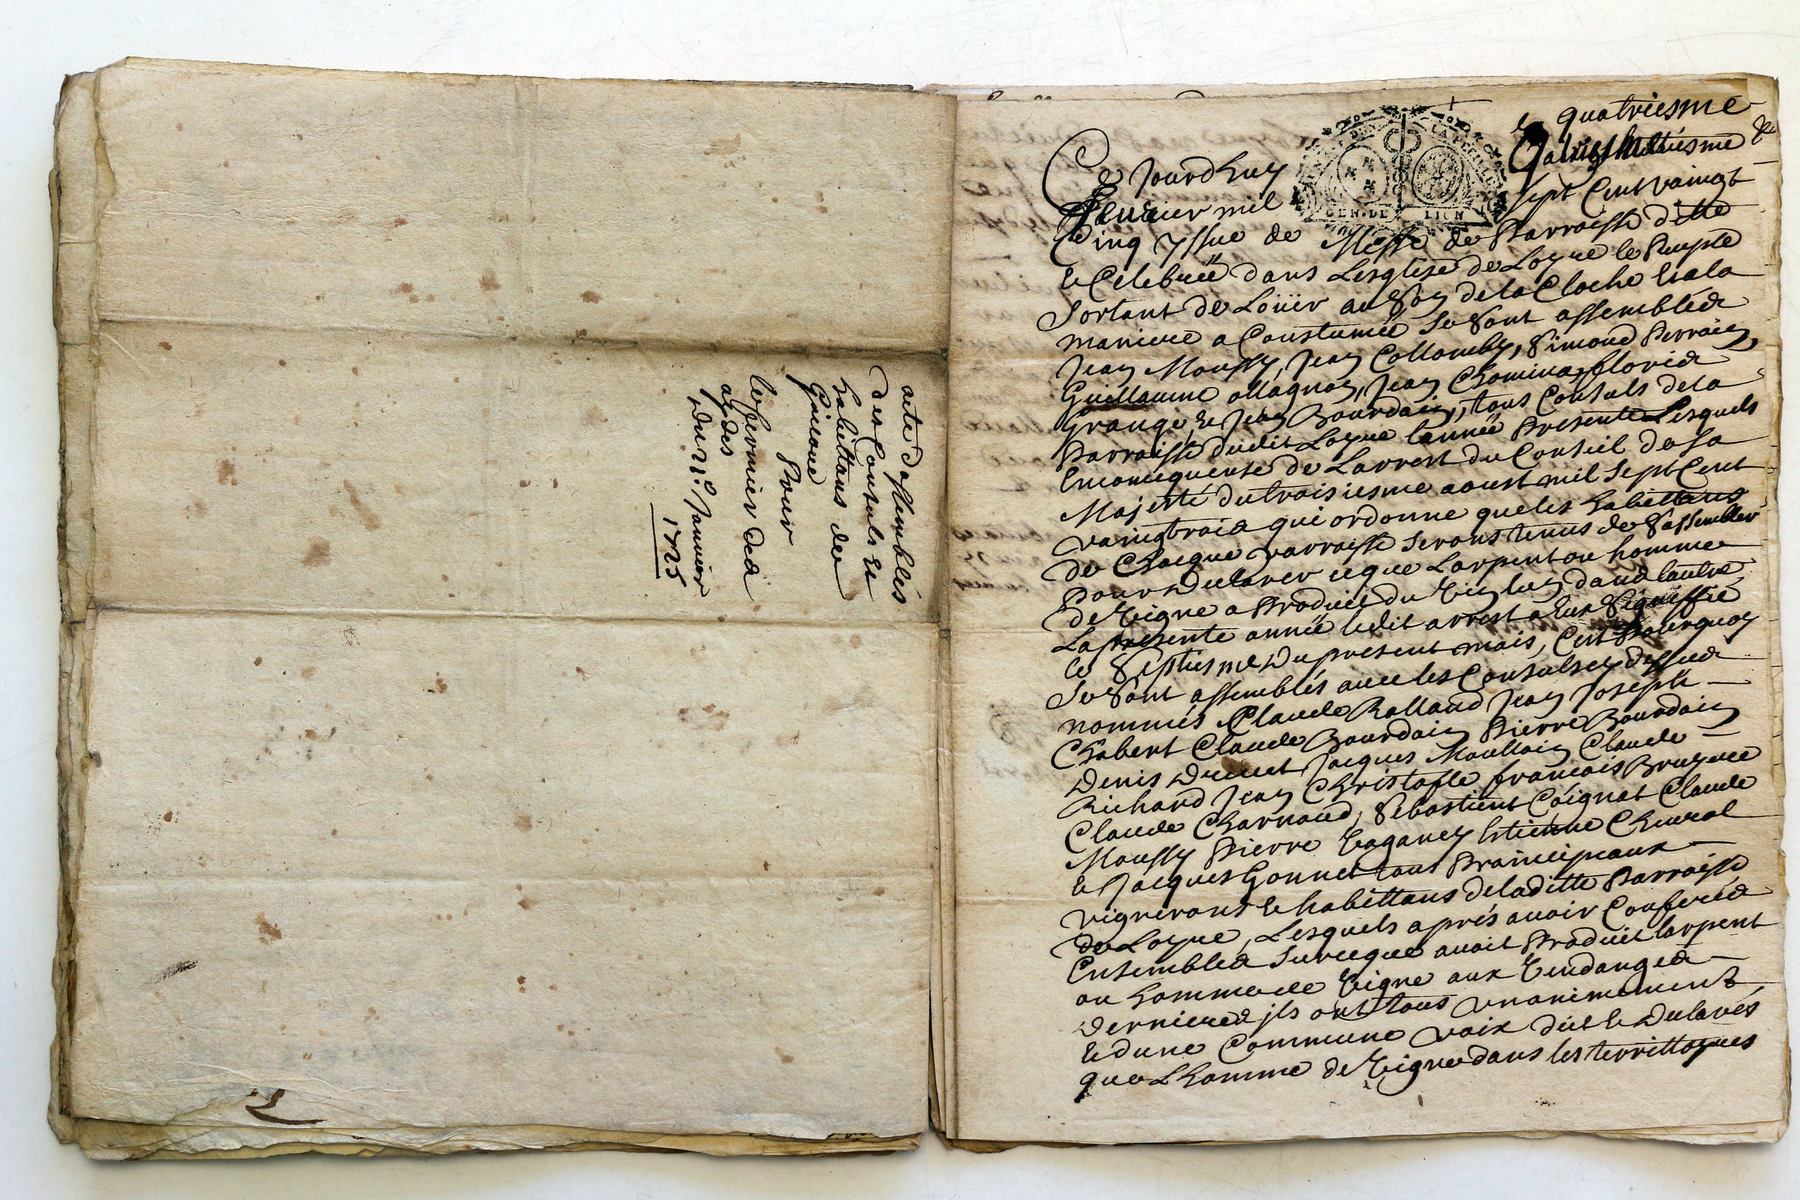 acte dassemblés
des Consuls et
habittans de
Pour
le fermier des
aydes
du 21e Janvier
1725
le quatriesme
Ce Jourdhuy
feuvrier mil sept Cent vaingt
Cinq yssue de Messe de Parroisse ditte
GEN·DE LION
et Celebreë dans Lesglise de Loyre le Peuple
Sortant de Loüir au Son de la Cloche et a la
maniere a Coustumeë se sont assemblés
Jean Moussy, Jean Collomby, Simond Perrain,
Guillaume Magnoy, Jean floris
Grange, et Jean Bourdain, tous Consuls de la
Parroisse dudit Loyre lanneë Presente Lesquels
En Consequense de Larrest du Conseil de Sa
Majesté du troisiesme aoust mil sept Cent
vaingtrois qui ordonne que les habittans
de Chacque parroisse seront tenus de Sassembler
pour declarer ce que Larpent ou homme
de Vigne a Produit du Vin lun dans lautre
La presente anneë ledit arrest a Eux Signiffié
le Septiesme du present mois, Cest Pourquoy
Se Sont assemblés avec les Consuls cy dessus
nommés Claude Rolland Jean Joseph
Chabert Claude Bourdain Pierre Bourdain
Denis Drevet Jacques Moullain Claude
Richard Jean Christofle francois Bruyere
Claude Charnaud, Sebastient Coignat Claude
Moussy Pierre Estienne
et Jacques Gonnet tous Praincipaux
vignerons et habittans de laditte Parroisse
de Loyre, Lesquels aprés avoir Conferés
Ensembles sur ce que avoit Produit larpent
ou homme de Vigne aux Vendanges
dernieres ils ont tous unanimement
et dune Commune voix dit et declarés
que Lhomme de Vigne dans les territtoyres